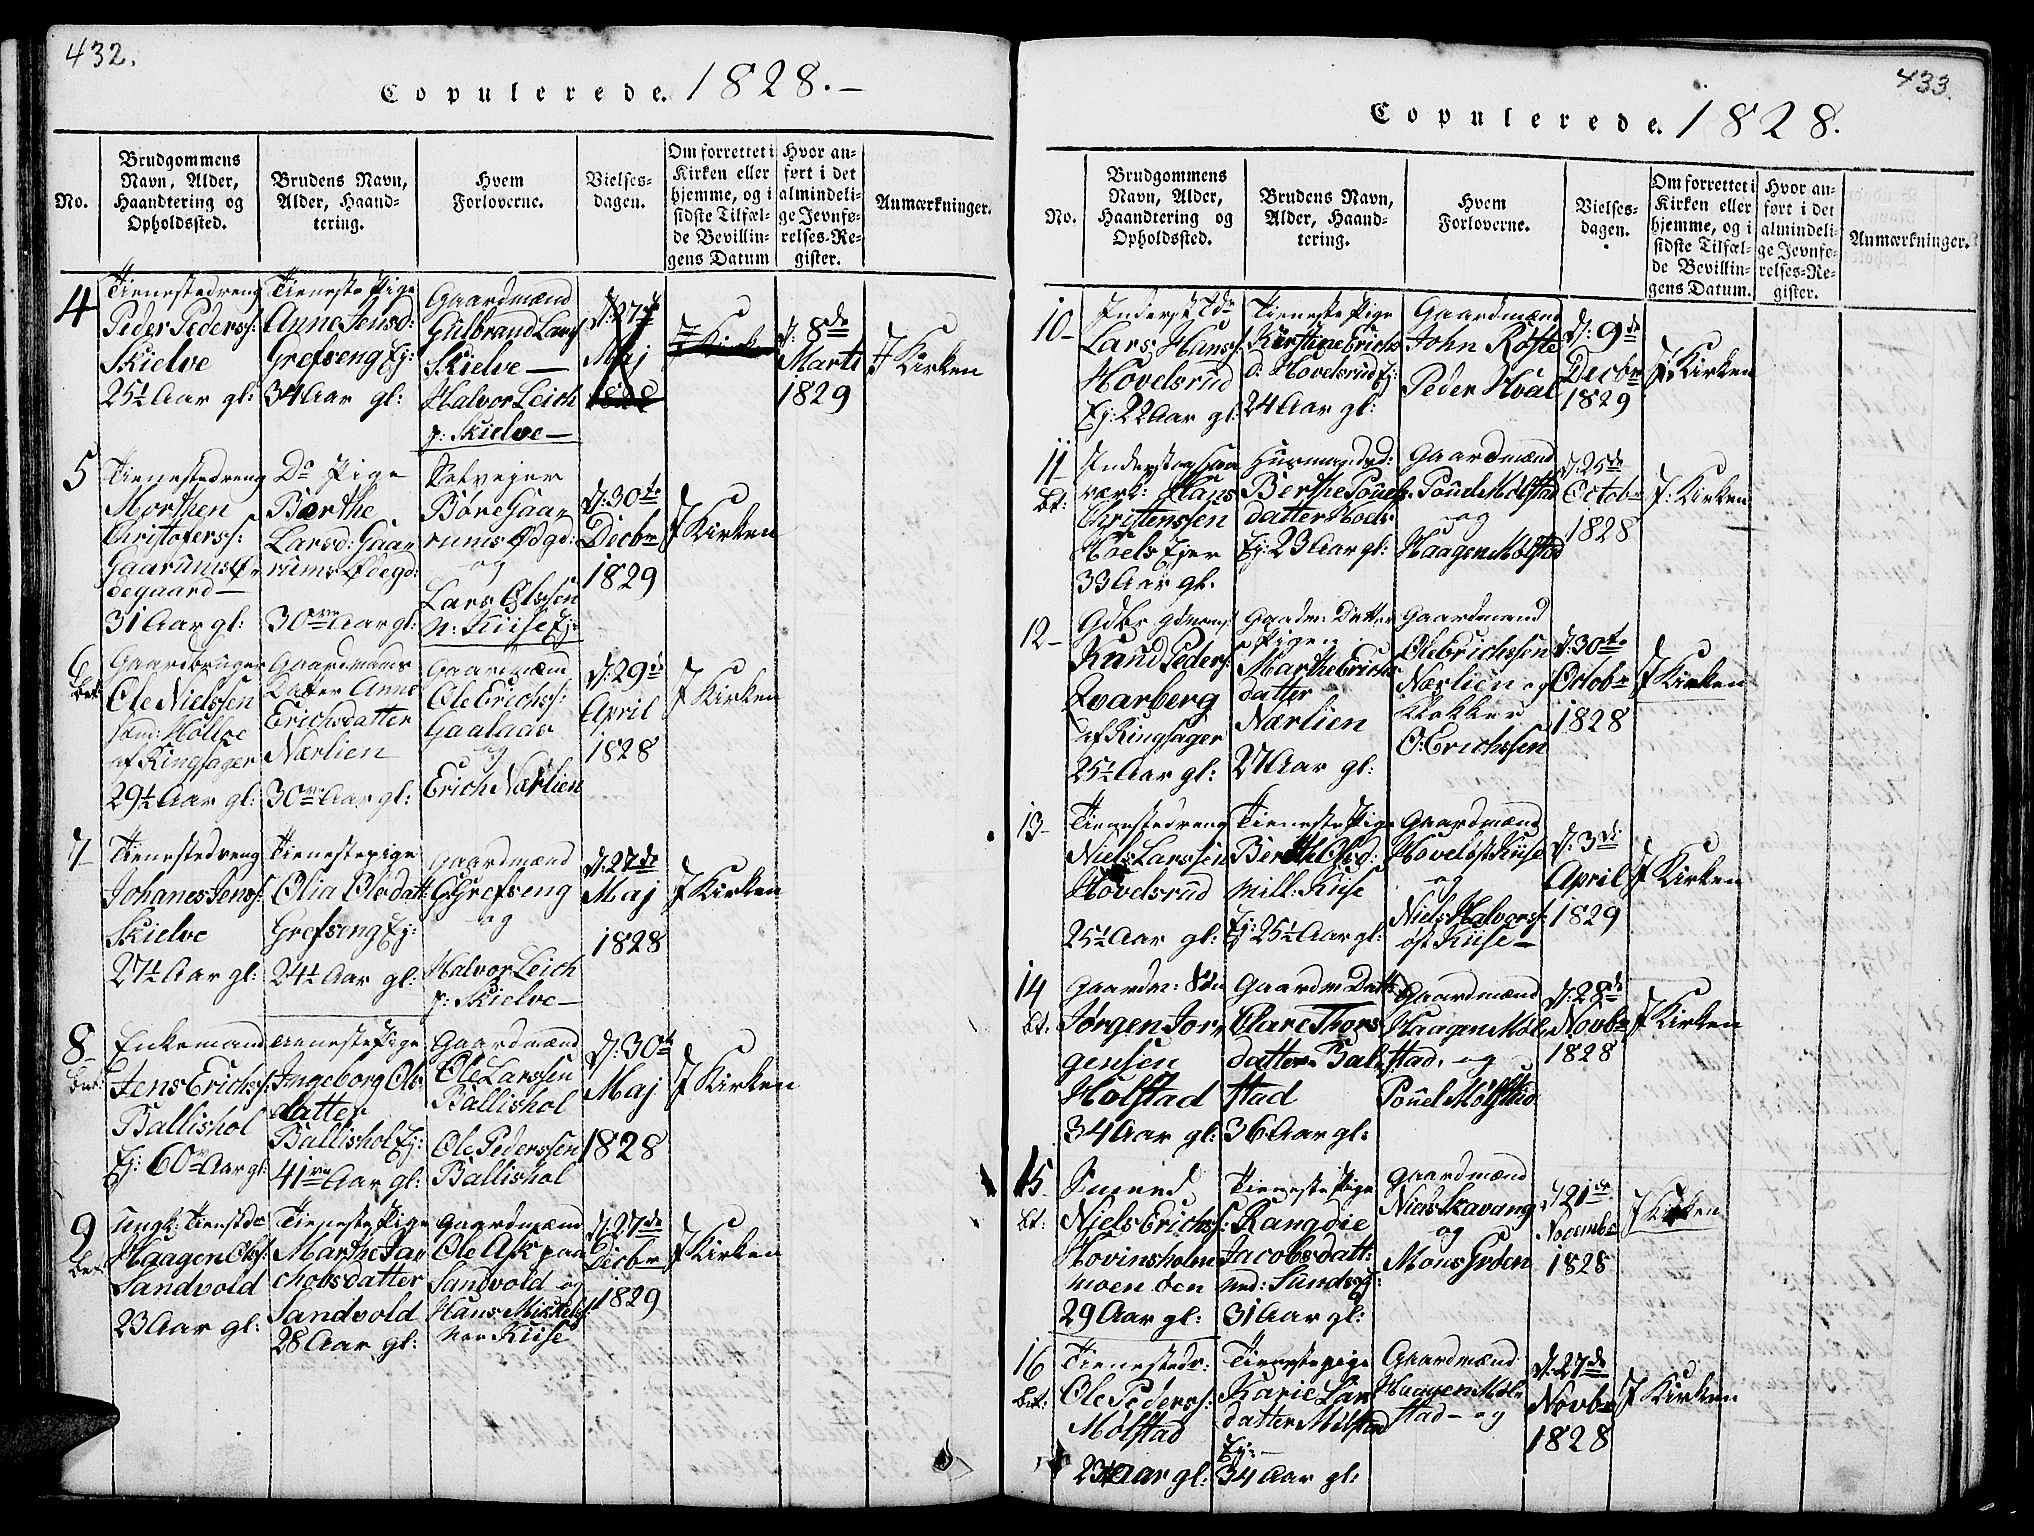 432.
Copulerede. 1828.-
No.
Brudgommens
Navn, Alder,
Haandtering og
Opholdssted.
Brudens Navn,
Alder, Haand-
tering.
Hvem
Forloverne.
Vielses-
dagen.
Om forrettet i
Kirken eller
hjemme, og i
sidste Tilfæl-
de Bevillin-
gens Datum
Hvor an-
ført i det
almindeli-
ge Jevnfø-
relses-Re-
gister.
Anmærkninger.
4
Tienestedreng
Peder Peders:
Skielve
25½ Aar gl:
Tieneste Pige
Anne Jensd:
Grefseng Ej:
34 Aar gl:
Gaardmænd
Gulbrand Lars
Skielve —
Halvor Leich
p: Skielve —
D: 27de
Maj
D: 8de
Marti
1829
J Kirken
5
Tienestedreng
Morthen
Christofers:
Gaarums Ø-
degaard —
31 Aar gl:
Do Pige
Barthe
Larsd: Gaa-
rums Ødegd:
30 Aar gl:
Selvejer
Børe Gaa-
rums Ødgd:
og
Lars Olssen
n: Kiise Ej:
D: 30te
Decbr
1829
J Kirken
6
Bet:
Gaardbruger
Ole Nielssen
Hollve
af Ringsager
29½ Aar gl:
Gaardmands
Datter Anne
Erichsdatter
Nærlien
30 Aar gl:
Gaardmænd
Ole Erichs:
Gaalaas
og
Erich Nærlien
D: 29de
April
1828
J Kirken
7
Tienestedreng
Johanes Jens:
Skielve
27½ Aar gl:
Tienestepige
Olia Olsdatt:
Grefseng Ej:
24½ Aar gl:
Gaardmænd
G Grefseng
og
Halvor Leich
p: Skielve —
D: 27de
Maj
1828
J Kirken
8
Bet:
Enkemand
Jens Erichs:
Ballishol
Ej: 60 Aar gl:
Tieneste Pige
Ingeborg Ols-
datter
Ballishol Ej:
41 Aar gl:
Gaardmænd
Ole Larssen
Ballishol
Ole Pederssen
Ballishol
D: 30te
Maj
1828
J Kirken
9
Bet:
Ungk: Tienstdr
Haagen Ols:
Sandvold
23 Aar gl:
Tieneste Pige
Marthe Ja-
chobsdatter
Sandvold
28 Aar gl:
Gaardmænd
Ole Ask paa
Sandvold og
Hans Mickels:
Nor Kiise
D: 27de
Decbr
1829
J Kirken
433.
Copulerede. 1828.
No.
Brudgommens
Navn, Alder,
Haandtering og
Opholdssted.
Brudens Navn,
Alder, Haand-
tering.
Hvem
Forloverne.
Vielses-
dagen.
Om forrettet i
Kirken eller
hjemme, og i
sidste Tilfæl-
de Bevillin-
gens Datum.
Hvor an-
ført i det
almindeli-
ge Jevnfø-
relses-Re-
gister.
Anmærkninger.
10
Lars Hans:
Hovelsrud
Ej: 22 Aar gl:
Tieneste Pige
Kirstine Erichs
d: Hovelsrud Ej:
24 Aar gl:
Gaardmænd
John Røste
Peder Hval
D: 9de
Decbr
1829
J Kirken
11
Bt:
Hans
Christenssen
Hoels Ejer
33 Aar gl.
Husmands d:
Berthe Pouels-
datter Hoels
Ej: 23 Aar gl:
Gaardmænd
Pouel Mølstad
og
Haagen Mølstad
D: 25de
Octobr
1828
J: Kirken
12
Knud Peders:
Kvarberg
af Ringsager
25½ Aar gl:
Gaardm: Datter
Pigen
Marthe Erichs
datter
Nærlien
27 Aar gl:
Gaardmænd
Ole Erichssen
Nærlien og
Klokker
O: Erichssen
D: 30te
Octobr
1828
J Kirken
13
Tienestedreng
Niels Larssen
Hovelsrud
25½ Aar gl:
Tieneste Pige
Berthe Olsd:
mill: Kiise
Ej: 25½ Aar gl:
Gaardmænd
Hovel øst Kiise
og
Niels Halvors:
øst Kiise —
D: 3de
April
1829
J Kirken
14
Bt.
Gaardm: Søn
Jørgen Jor-
gensen
Holstad
34 Aar gl:
Gaardm Datt:
Clare Thors-
datter Bal-
stad
36 Aar gl:
Gaardmænd
Haagen Møl-
stad, og
Pouel Mølstad
D: 28de
Novbr
1828
J Kirken
15
Bt:
Smeed
Niels Erichs:
Hovinsholm
moen den
29 Aar gl:
Tieneste Pige
Rangdie
Jacobsdatt:
ned: Sund Ej:
31 Aar gl:
Gaardmænd
Niels Skavang
og
Mons Jrden
D 21de
Novembr
1828
J Kirken
16
Bet:
Tienestedr:
Ole Peders:
Mølstad
23 Aar gl:
Tienestepige
Karie Lars
datter Mølstad
Ej: —
34 Aar gl:
Gaardmænd
Haagen Møl-
stad — og
D: 27de
Novbr
1828
J Kirken